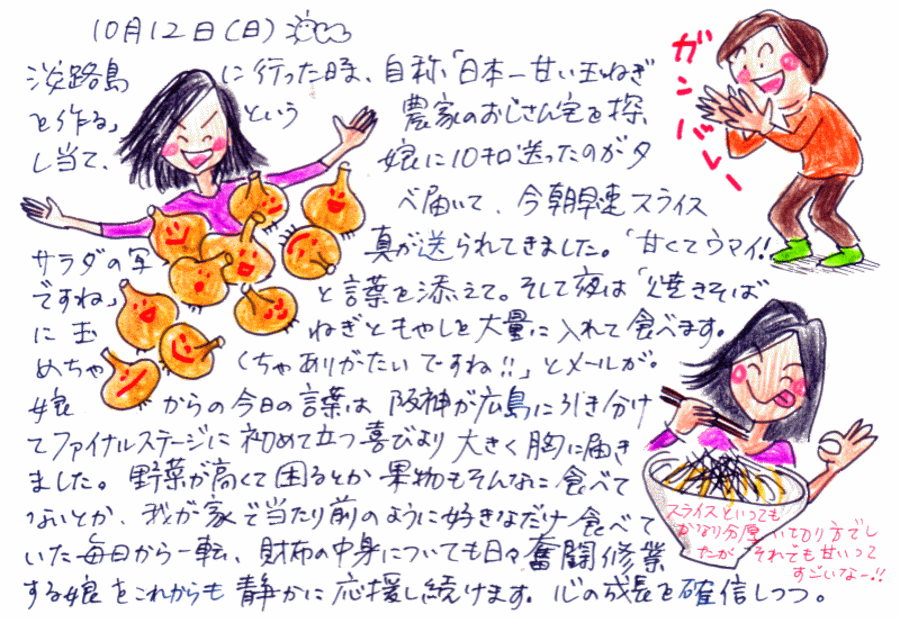 10月12日(日)
淡路島に行った時、自称「日本一甘い玉ねぎ
を作る」という農家のおじさん宅を探
し当て、娘に10キロ送ったのが夕
べ届いて、今朝早速スライス
サラダの写真が送られてきました。「甘くてウマイ!
ですね」と言葉を添えて。そして夜は「焼きそば
に玉ねぎともやしを大量に入れて食べます。
めちゃくちゃありがたいですね!!」とメールが。
娘からの今日の言葉は阪神が広島に引き分け
てファイナルステージに初めて立つ喜びより大きく胸に届き
ました。野菜が高くて困るとか果物もそんなに食べて
ないとか、我が家で当たり前のように好きなだけ食べて
いた毎日から一転、財布の中身についても日々奮闘修業
する娘をこれからも静かに応援し続けます。心の成長を確信しつつ。
ガンバレー
スライスといっても
かなり分厚い切り方でし
たが、それでも甘いって
すごいなー!!